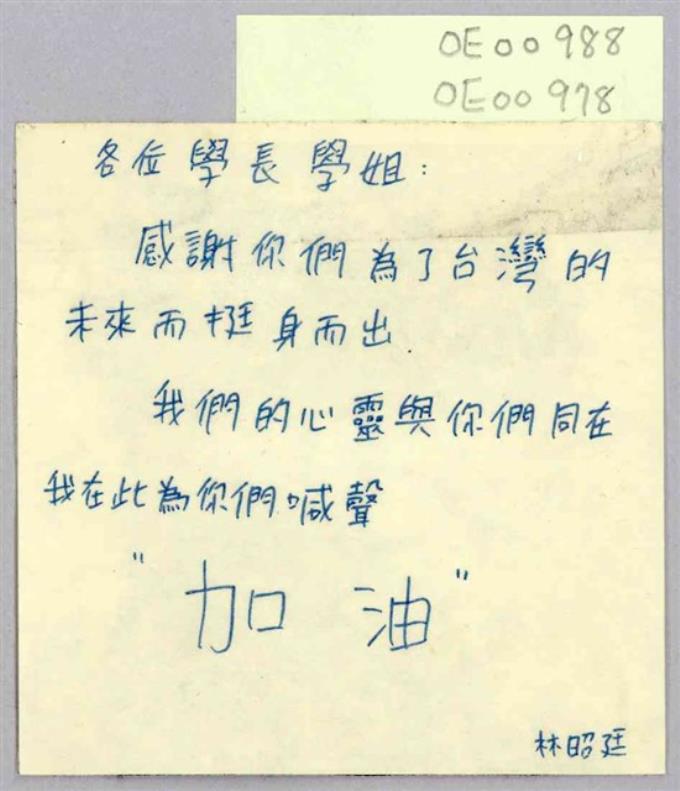 OE00988
OE00978
各位學長學姐：
感謝你們為了台灣的
未來而挺身而出
我們的心靈與你們同在
我在此為你們喊聲
"加油"
林昭廷